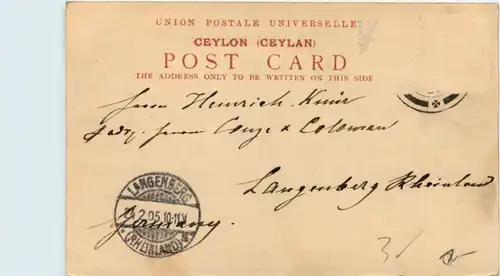 UNION POSTALE UNIVERSELLE
CEYLON (CEYLAN)
POST CARD
THE ADDRESS ONLY TO BE WRITTEN ON THIS SIDE
Herrn Heinrich Knür
adr. Herrn Conze & Colsman
Langenberg Rheinland
Germany.
LANGENBERG
2.05.10-11V
(RHEINLAND)